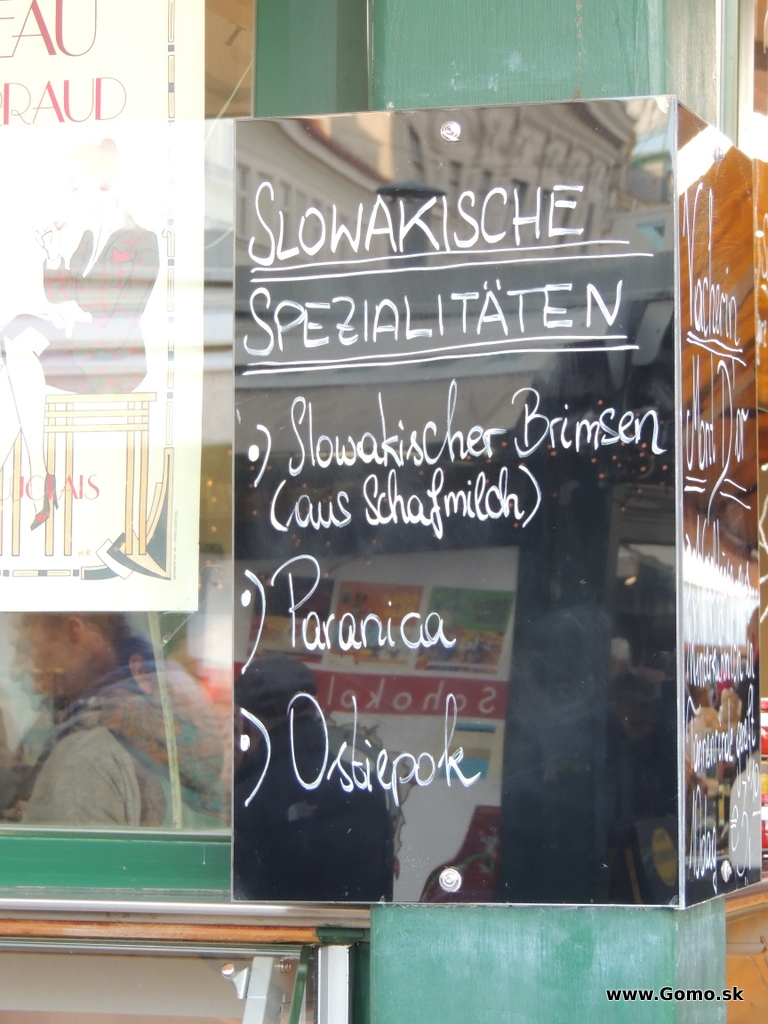 EAU
RAUD
UJOLAIS
SLOWAKISCHE
SPEZIALITÄTEN
•) Slowakischer Brimsen
(aus Schafmilch)
•) Paranica
•) Ostiepok
Schokol
Vacherin
Mont D'or
www.Gomo.sk